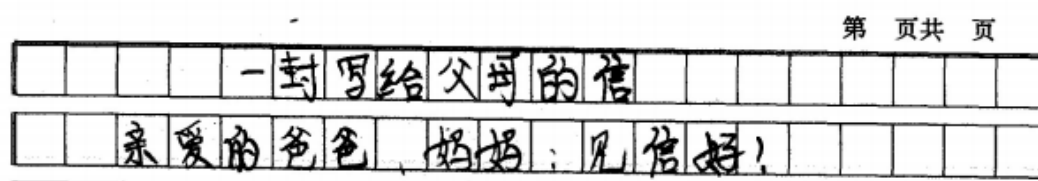 第 页共 页
一封写给父母的信
亲爱的爸爸、妈妈：见信好！